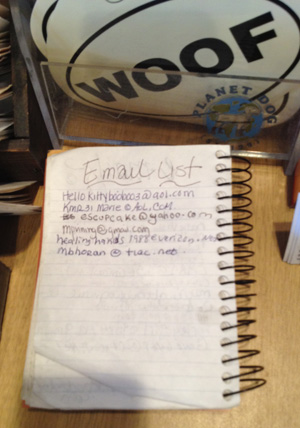 WOOF
PLANET DOG
Email List
Hellokittyboobooo3@aol.com
Kmr31 Marie @ AOL.COM
escupcake@yahoo.com
@gmail.com
healing hands 1988@verizon.net
mbhoran @ tiac.net